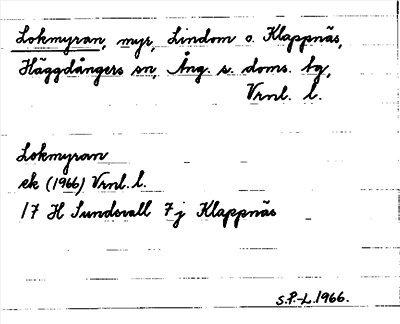 Lokmyran, myr, Lindom o. Klappnäs,
Häggdångers sn, Ång. s. doms. tg,
Vrnl. l.
Lokmyran
ek (1966) Vrnl. l.
17 H Sundsvall 7 j Klappnäs
S.P.-L. 1966.